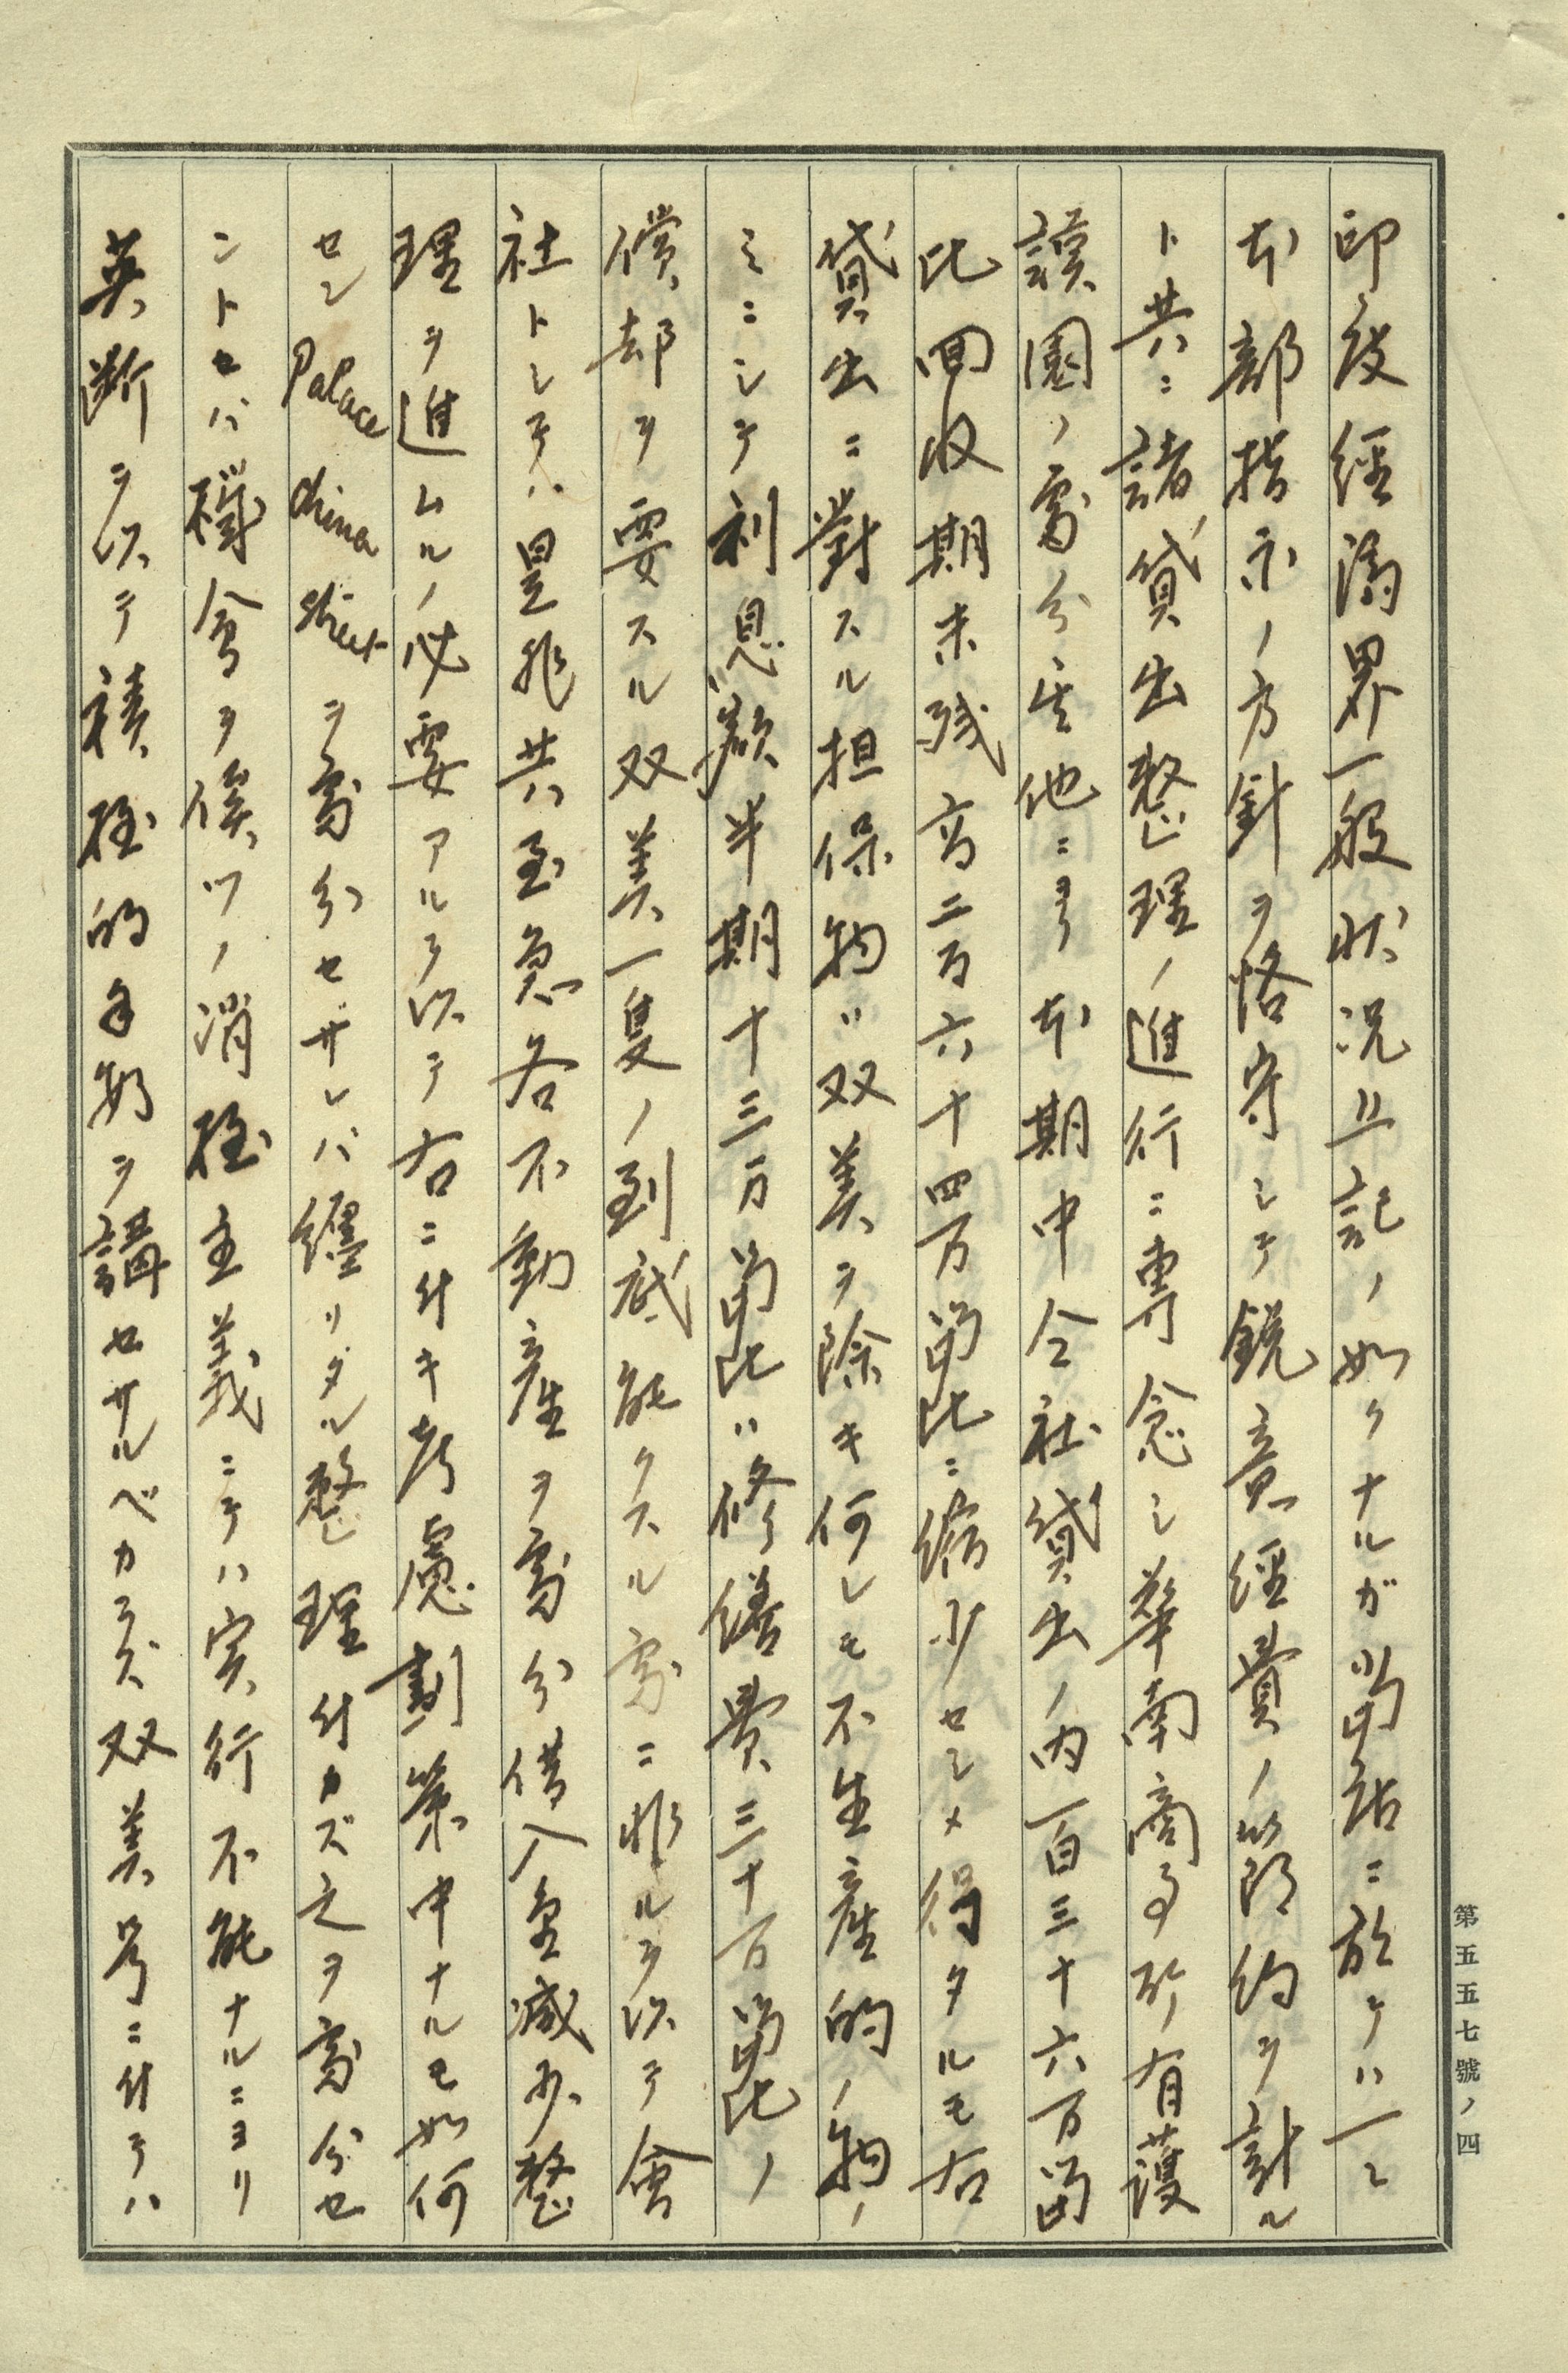 印度経済界一般状況上記ノ如クナルガ当店ニ於テハ一ニ
本部指示ノ方針ヲ恪守シテ鋭意経費ノ節約ヲ計ル
ト共ニ諸貸出整理ノ進行ニ専念シ華南商事所有護
謨園ノ處分其他ニヨリ本期中仝社貸出ノ内百三十六万留
比回収期末残高二百六十四万留比ニ縮少セシメ得タルモ右
貸出ニ對スル担保物ハ双美ヲ除キ何レモ不生産的ノ物ノ
ミニシテ利息額半期十三万留比ハ修繕費三十万留比ノ
償却ヲ要スル双美一隻ノ到底能クスル處ニ非ルヲ以テ會
社トシテハ是非共至急各不動産ヲ處分借入金減少整
理ヲ進ムルノ必要アルヲ以テ右ニ付キ考慮劃策中ナルモ如何
セン Palace China Street ヲ處分セザレバ纏リタル整理付カズ之ヲ處分セ
ントセバ機會ヲ俟ツノ消極主義ニテハ実行不能ナルニヨリ
英断ヲ以テ積極的手段ヲ講セサルベカラズ双美号ニ付テハ
第五五七號ノ四